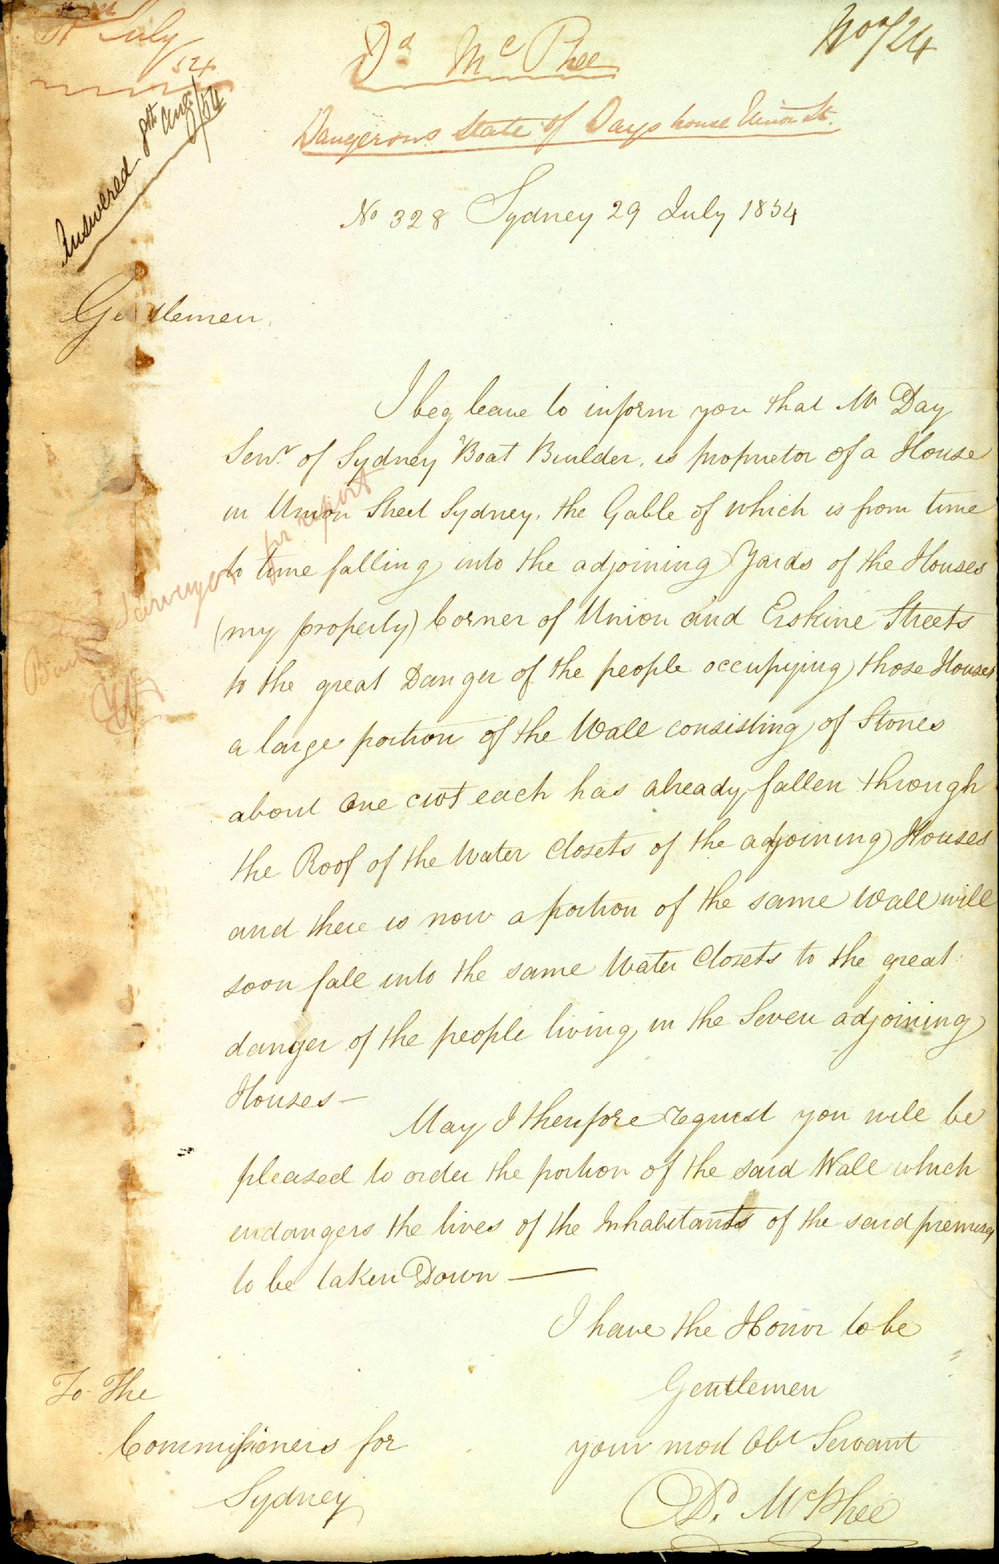 31st July
/54
Dd McPhee
No 724
Dangerous State of Days house Union St.
Answered 8th Aug/54
No 328 Sydney 29 July 1854
Gentlemen
I beg leave to inform you that Mr Day
Senr of Sydney Boat Builder, is proprietor of a House
in Union Street Sydney, the Gable of which is from time
to time falling into the adjoining Yards of the Houses
(my property) Corner of Union and Erskine Streets
to the great Danger of the people occupying those Houses
a large portion of the Wall consisting of Stones
about One cwt each has already fallen through
the Roof of the Water Closets of the adjoining Houses
and there is now a portion of the same Wall will
soon fall into the same Water Closets to the great
danger of the people living in the Seven adjoining
Houses —
Surveyor for report
May I therefore request you will be
pleased to order the portion of the said Wall which
endangers the lives of the Inhabitants of the said premises
to be taken Down —
I have the Honor to be
Gentlemen
your most Obt Servant
Dd. McPhee
To The
Commissioners for
Sydney